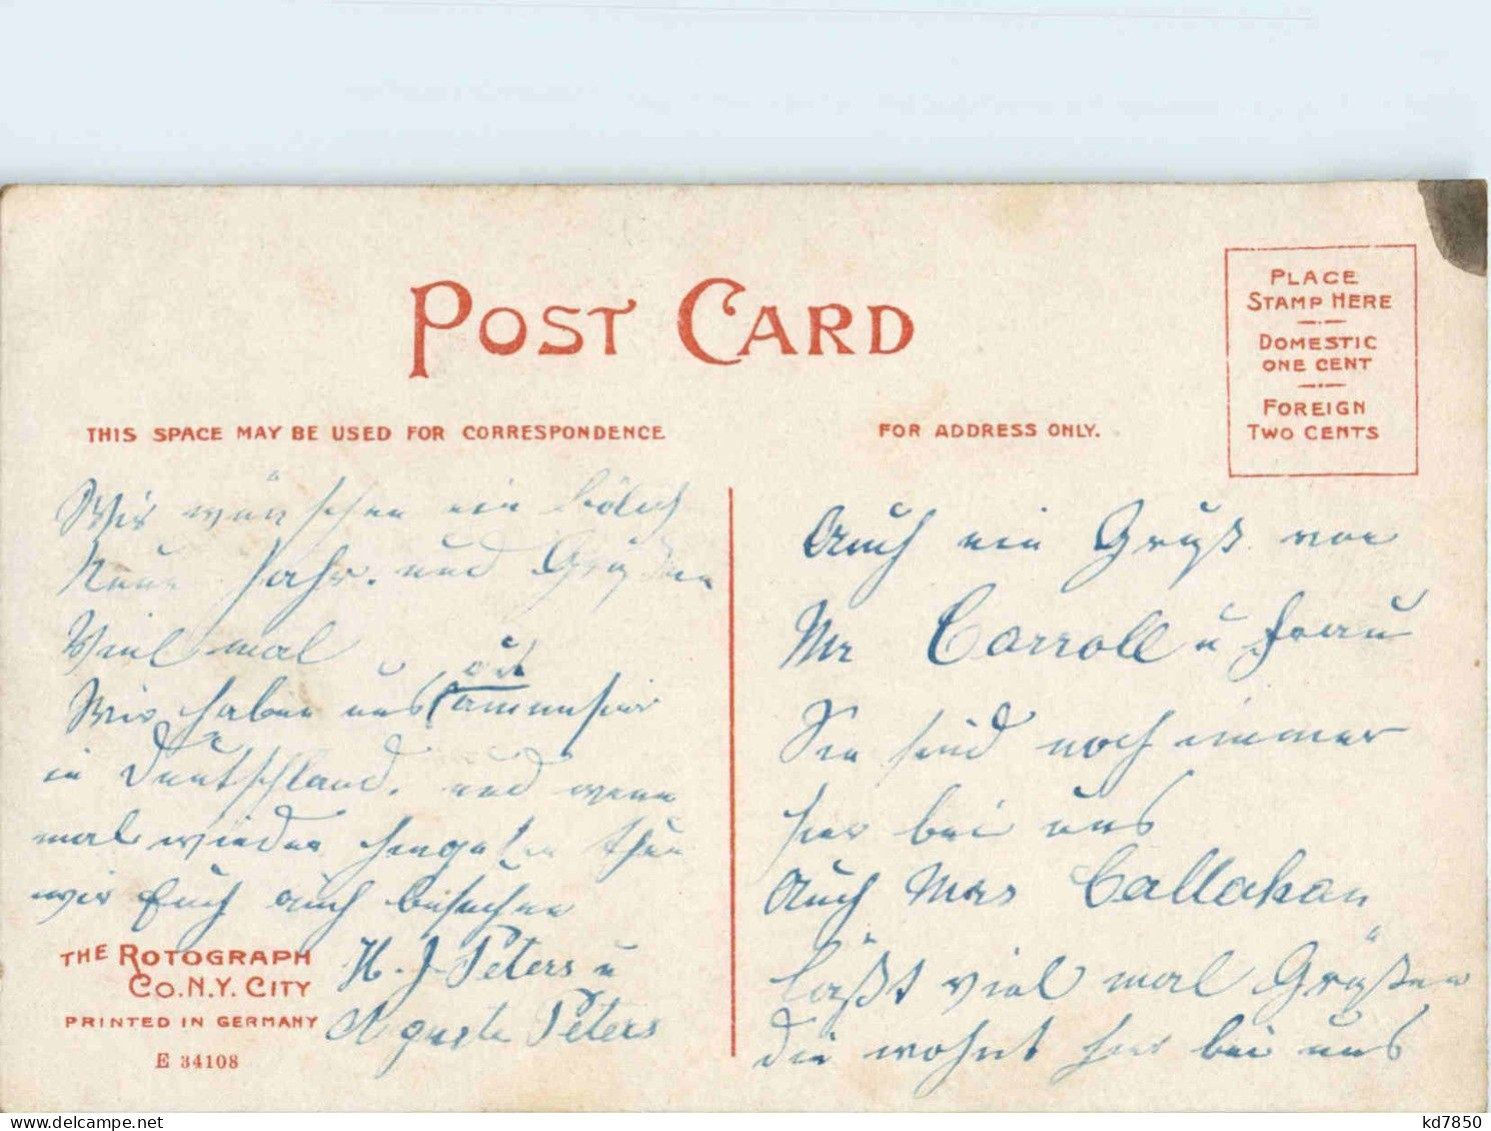 POST CARD
PLACE
STAMP HERE
DOMESTIC
ONE CENT
FOREIGN
TWO CENTS
THIS SPACE MAY BE USED FOR CORRESPONDENCE
FOR ADDRESS ONLY.
Wir wünschen ein
Neues Jahr. und Grüßen
Viel mal
Wir haben uns
in Deutschland. und wenn
mal wieder thun
wir Euch auch besuchen
H. J. Peters u
Auguste Peters
THE ROTOGRAPH
CO. N.Y. CITY
PRINTED IN GERMANY
E 34108
Auch ein Gruß von
Mr Carroll u Frau
Sie sind noch immer
hier bei uns
Auch Mrs Callahan
läßt viel mal Grüßen
die wohnt hier bei uns
kd7850